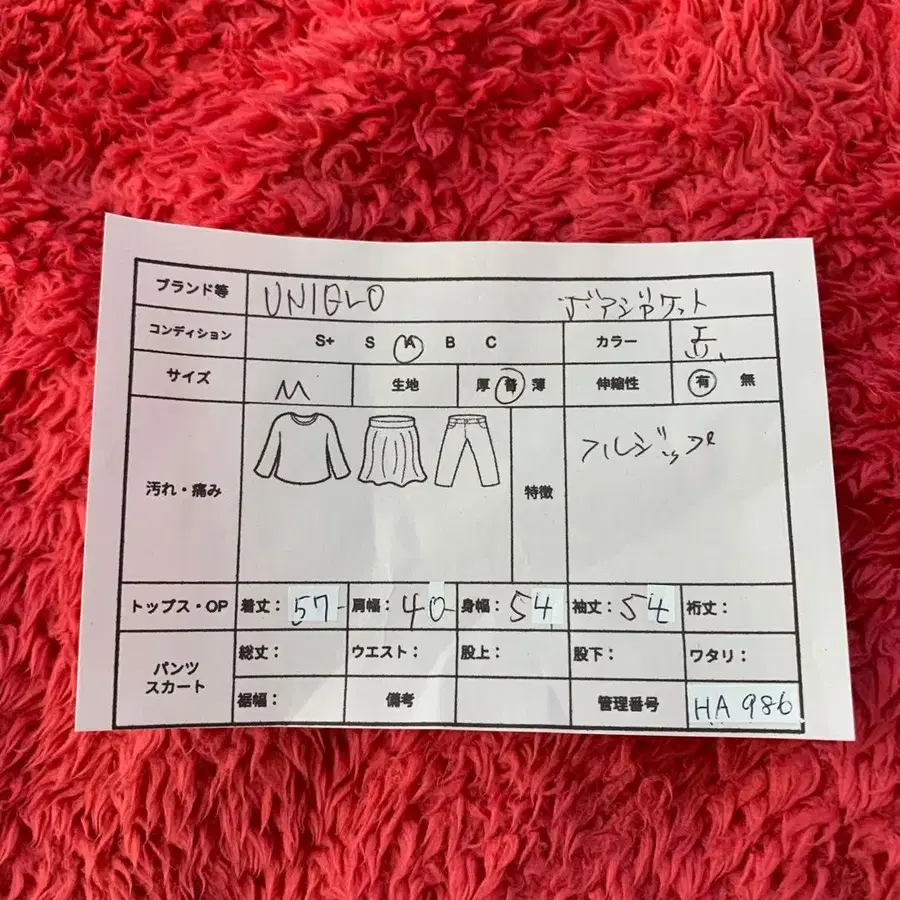 ブランド等 UNIQLO ボアジャケット
コンディション S+ S A B C カラー
サイズ M 生地 厚 普 薄 伸縮性 有 無
汚れ・痛み 特徴 フルジップ
トップス・OP 着丈: 57 肩幅: 40 身幅: 54 袖丈: 54 裄丈:
パンツ スカート 総丈: ウエスト: 股上: 股下: ワタリ:
裾幅: 備考 管理番号 HA 986